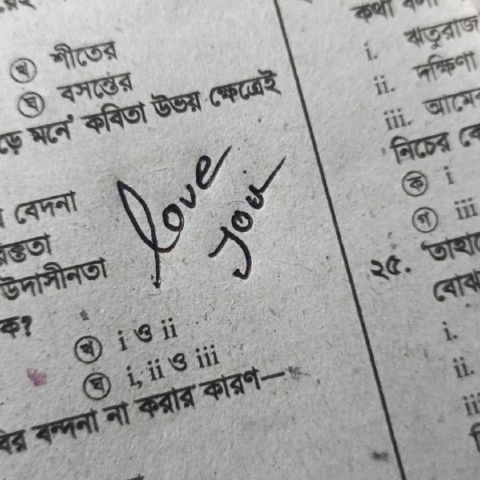 খ শীতের
ঘ বসন্তের
ড়ে মনে' কবিতা উভয় ক্ষেত্রেই
বেদনা
ক্ততা
উদাসীনতা
ক?
খ i ও ii
ঘ i, ii ও iii
বন্দনা না করার কারণ—
love
you
i. ঋতুরাজ
ii. দক্ষিণা
iii.
নিচের
ক i
গ iii
২৫.
i.
ii.